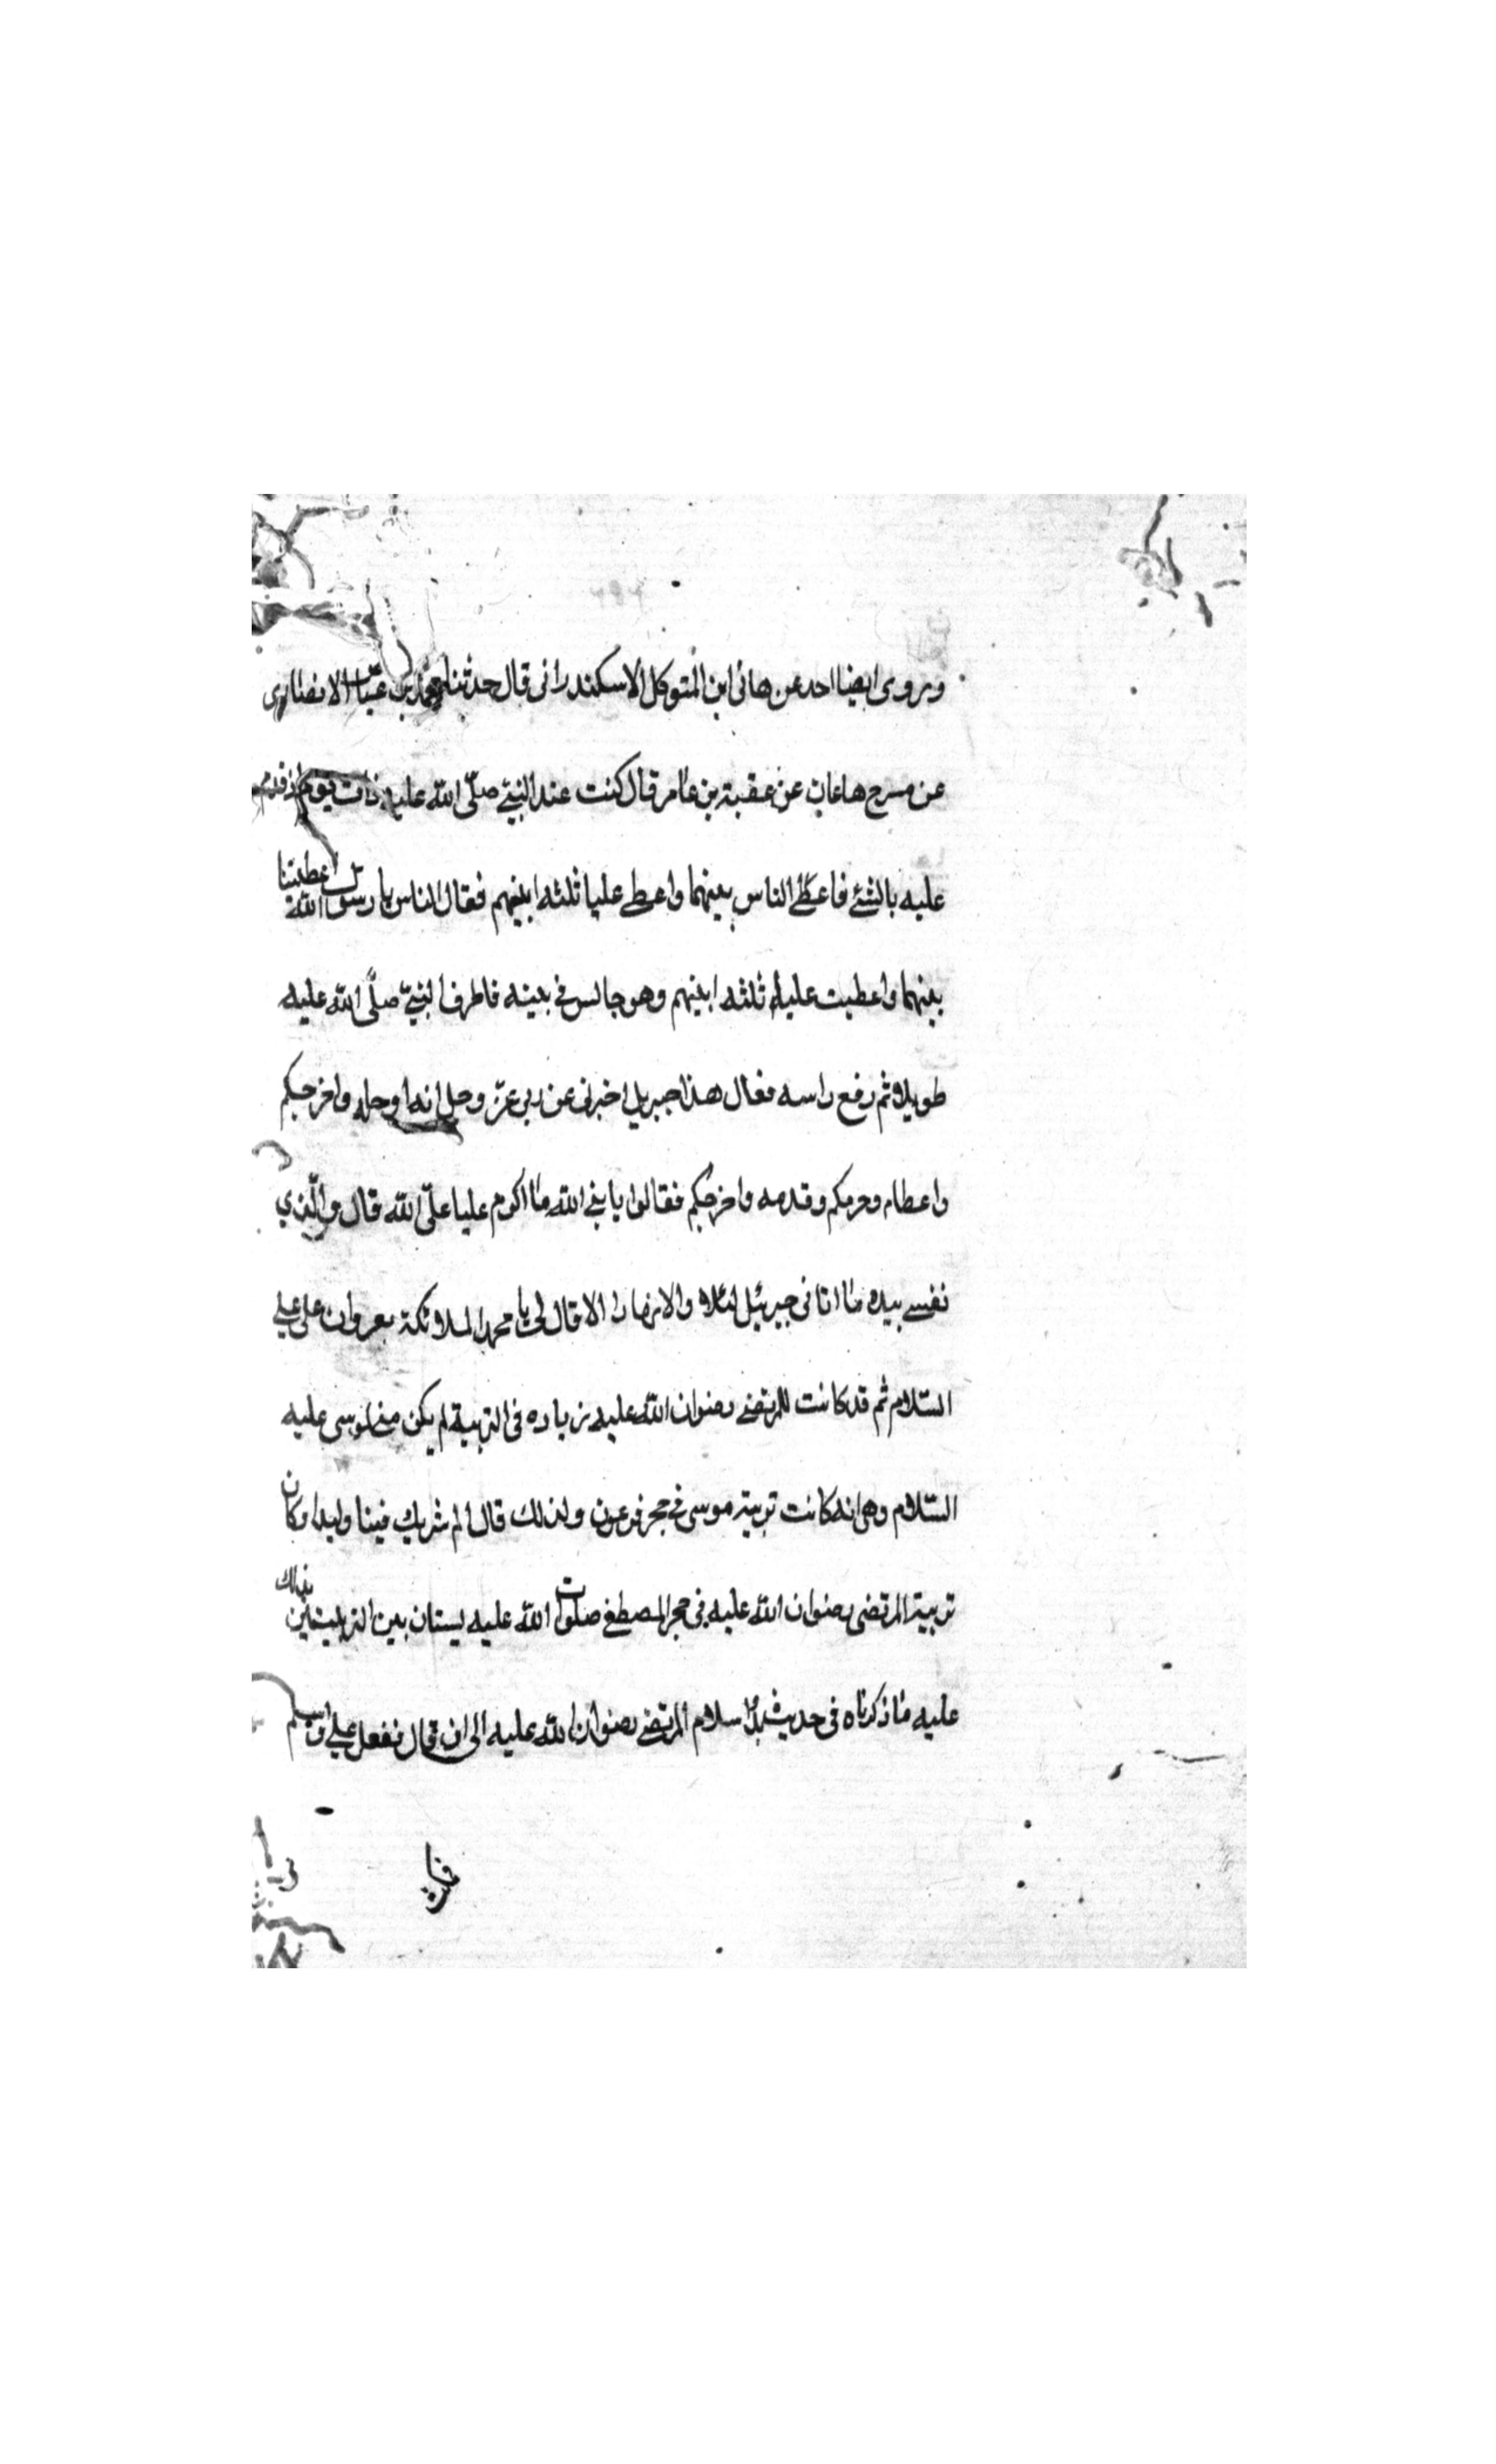 وروى ايضا احد عن هانى ابن المتوكل الاسكندرانى قال حدثنا محمد بن عباس الانصارى
عن مسرح هاعان عن عقبة بن عامر قال كنت عند النبى صلّى الله عليه ذات يوم اذ قدم
عليه بالشئ فاعطى الناس بينهما واعطى عليا ثلثه ابينهم فقال الناس يا رسول الله اعطيتنا
بينهما واعطيت عليا ثلثه ابينهم وهو جالس فى بيته فاطرف النبى صلّى الله عليه
طويلا ثم رفع راسه فقال هذا جبريل اخبرنى عن ربى عزّ وجل انه اوحله واخرجكم
واعطاه وحرمكم وقدمه واخرجكم فقالوا يا نبى الله ما اكرم عليا على الله قال والّذي
نفسى بيده ما اتانى جبرئيل والا قال لى يا محمد الملائكة على على
السّلام ثم قد كانت للمرتضى رضوان الله عليه زياده فى التربية لم يكن لموسى عليه
السّلام وهى انه كانت تربية موسى فى حجر فرعون ولذلك قال الم نربك فينا وليدا وكان
تربية المرتضى رضوان الله عليه فى حجر المصطفى صلوات الله عليه بين التربيتين بذلك
عليه ما ذكرناه فى حديث اسلام المرتضى رضوان الله عليه الى ان قال ففعل على واسلم